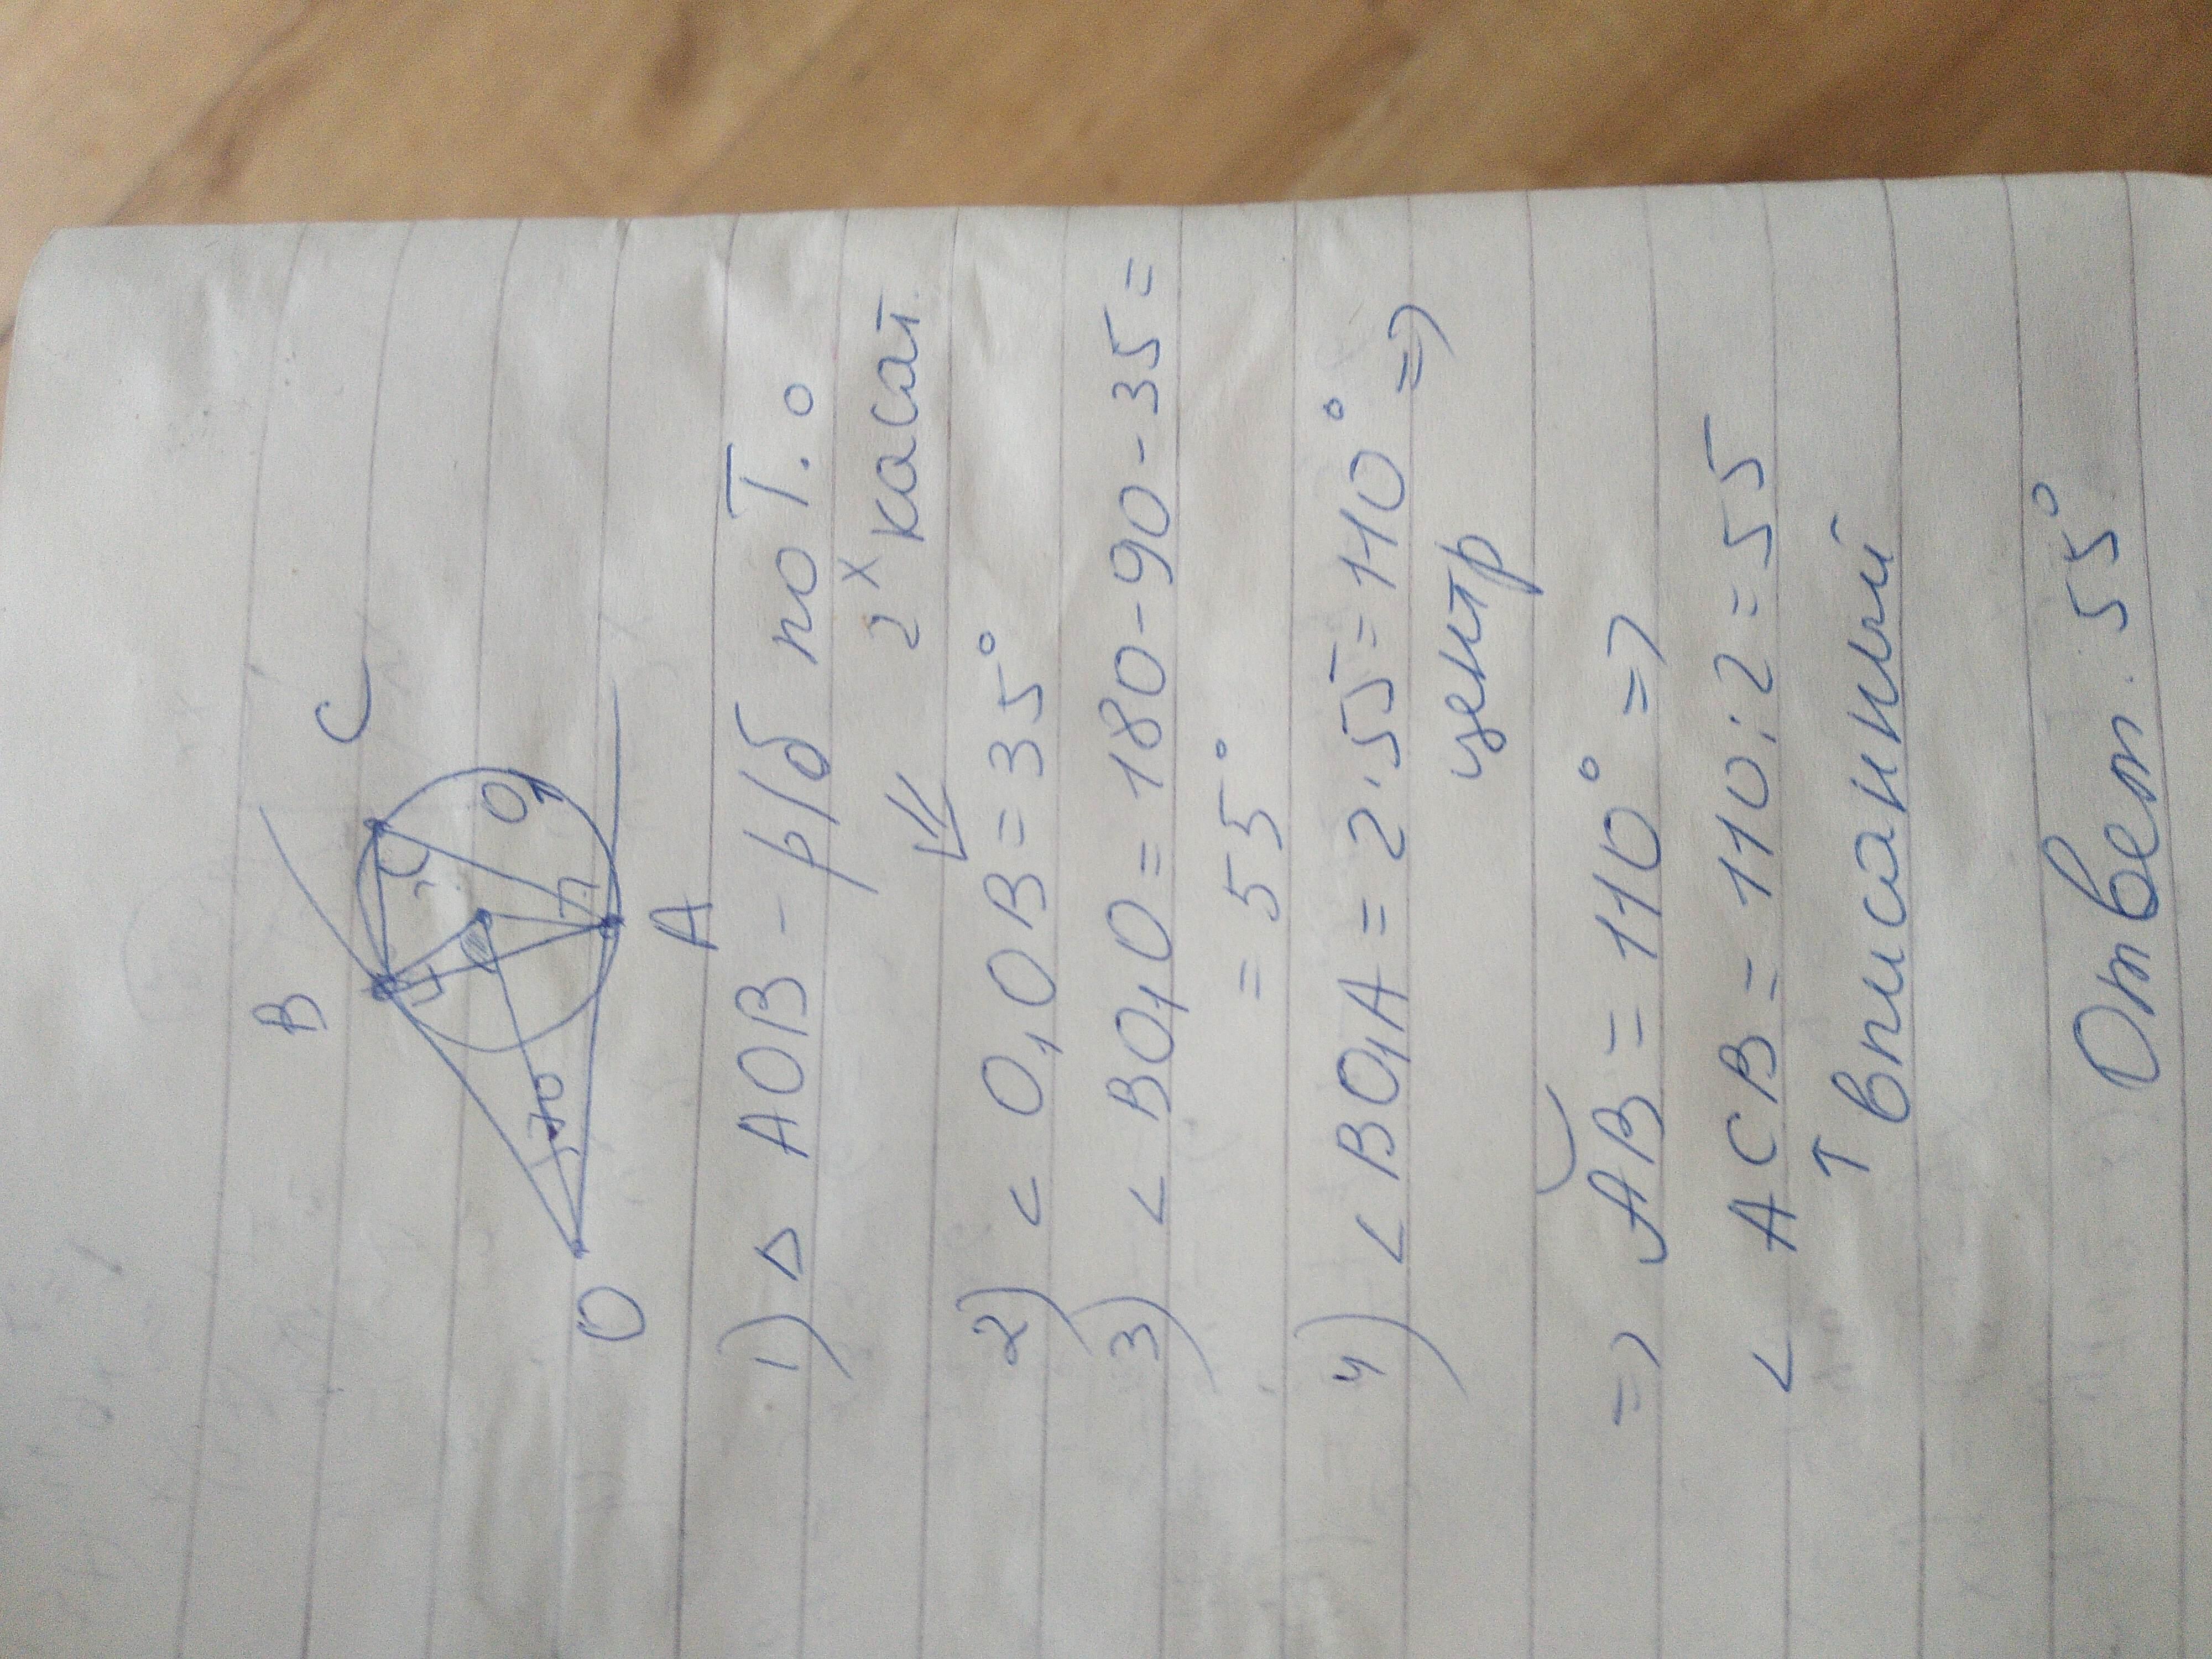 B
C
O₁
70
O
A
1) ∆ AOB - р/б по Т. о
2ˣ касат.
2) < O₁OB = 35°
3) < BO₁O = 180-90-35=
= 55°
4) < BO₁A = 2·55=110° =>
центр
=> ◡AB = 110° =>
< ACB = 110:2=55
↑ вписанный
Ответ. 55°